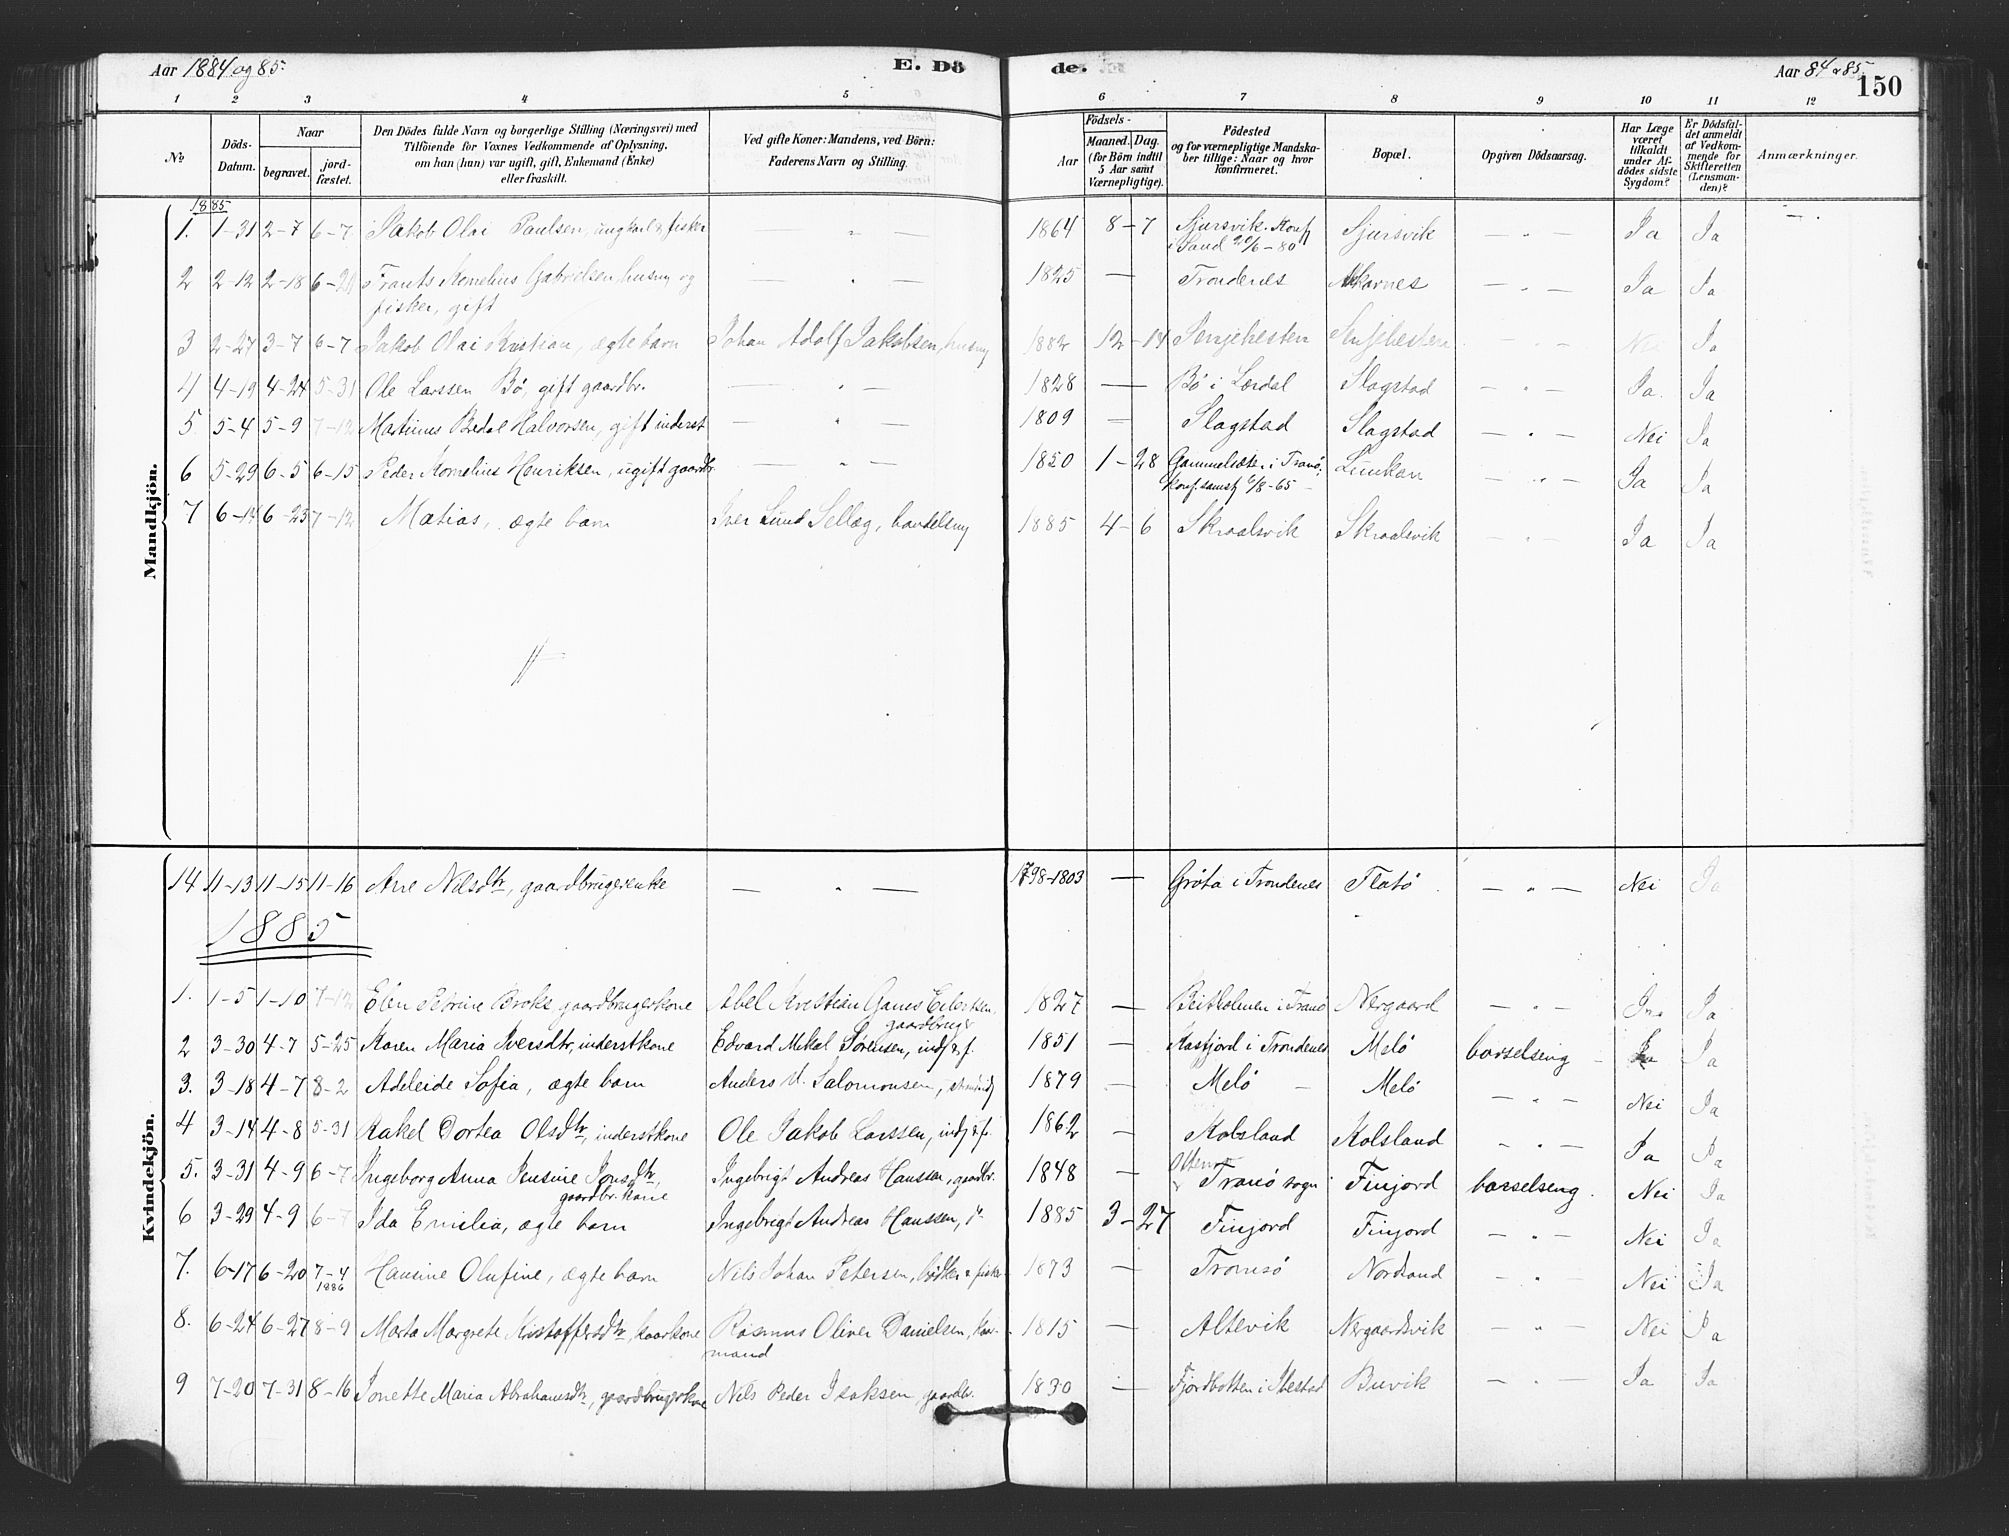 Aar 1884 og 85.
E. Dö
de.
Aar 84 & 85.
150
1 2 3 4 5 6 7 8 9 10 11 12
No
Döds-Datum.
Naar
begravet.
jord-fæstet.
Den Dödes fulde Navn og borgerlige Stilling (Næringsvei) med
Tilföiende for Voxnes Vedkommende af Oplysning,
om han (hun) var ugift, gift, Enkemand (Enke)
eller fraskilt.
Ved gifte Koner: Mandens, ved Börn:
Faderens Navn og Stilling.
Födsels-
Aar
Maaned. Dag.
(for Börn indtil
5 Aar samt
Værnepligtige).
Födested
og for værnepligtige Mandska-
ber tillige: Naar og hvor
konfirmeret.
Bopæl.
Opgiven Dödsaarsag.
Har Læge
været
tilkaldt
under Af-
dödes sidste
Sygdom?
Er Dödsfal-
det anmeldt
af Vedkom-
mende for
Skifteretten
(Lensman-
den)?
Anmærkninger.
Mandkjön.
1885
1. 1-31 2-7 6-7 Jakob Olai Paulsen, ungkarl & fisker — „ — 1864 8-7 Sjursvik. Konf. i Sand 20/6-80 Sjursvik — „ — Ja Ja — .
2 2-12 2-18 6-28 Frants Kornelius Gabrielsen, husm og fisker, gift — „ — 1825 — Trondenes Skarnes — „ — Ja Ja
3 2-27 3-7 6-7 Jakob Olai Kristian, ægte barn Johan Adolf Jakobsen, husm 1882 12-14 Senjehesten Senjehesten — „ — Nei Ja
4 4-19 4-24 5-31 Ole Larssen Bö, gift gaardbr. — „ — 1828 — Bö i Lærdal Slagstad — „ — Ja. Ja
5. 5-4 5-9 7-12 Martinus Bredal Halvorsen, gift inderst — „ — 1809 — Slagstad Slagstad — „ — Nei Ja
6 5-29 6-5 6-15 Peder Kornelius Henriksen, ugift gaardbr. — „ — 1850 1-28 Gammelsæter i Tranö, konf. samst. 6/8-65 — „ — Ja Ja
7 6-14 6-23 7-12 Matias, ægte barn Iver Lund Sellæg, handelsm 1885 4-6 Skroalsvik Skroalsvik — „ — Ja Ja
Kvindekjön.
14 11-13 11-15 11-16 Ane Nilsdtr, gaardbrugerenke — „ — 1798-1803 — Gröta i Trondenes Flatö — „ — Nei Ja
1885
1. 1-5 1-10 7-12 Elen Perine Broks gaardbrugerkone Abel Kristian Ganes Eilertsen, gaardbruger 1827 — Beitholmen i Tranö Nergaard — „ — Ja Ja
2 3-30 4-7 5-25 Karen Maria Iversdtr, inderstkone Edvard Mikal Sörensen, ind. & f. 1851 — Kasfjord i Trondenes Melö barselseng — Ja Ja
3. 3-18 4-7 8-2 Adeleide Sofia, ægte barn Anders U. Salomonsen, 1879 — Melö — Melö — „ — Nei Ja
4 3-14 4-8 5-31 Rakel Dortea Olsdtr, inderstkone Ole Jakob Larssen, ind. & f. 1862 — Kolsland Kolsland — „ — Ja Ja
5. 3-31 4-9 6-7 Ingeborg Anna Jensine Jonsdtr, gaardbr. kone Ingebrigt Andreas Hanssen, gaardbr. 1848 — Tranö sogn Finjord barselseng. Nei Ja
6 3-29 4-9 6-7 Ida Emilia, ægte barn Ingebrigt Andreas Hanssen, d. 1885 3-27 Finjord Finjord — „ — Nei Ja
7. 6-17 6-20 7-4 1886 Hansine Olufine, ægte barn Nils Johan Petersen, bödker & fisker 1873 — Tromsö Nordsand — „ — Nei Ja
8. 6-24 6-27 8-9 Marta Margrete Kristoffersdtr, kaarkone Rasmus Oliver Danielsen, kaarmand 1815 — Altevik Nergaardsvik — „ — Nei Ja
9 7-20 7-31 8-16 Jonette Maria Abrahamsdtr, gaardbrugerkone Nils Peder Isaksen, gaardbr. 1830 — Fjordbotten i Ibestad Buvik — „ — Ja Ja